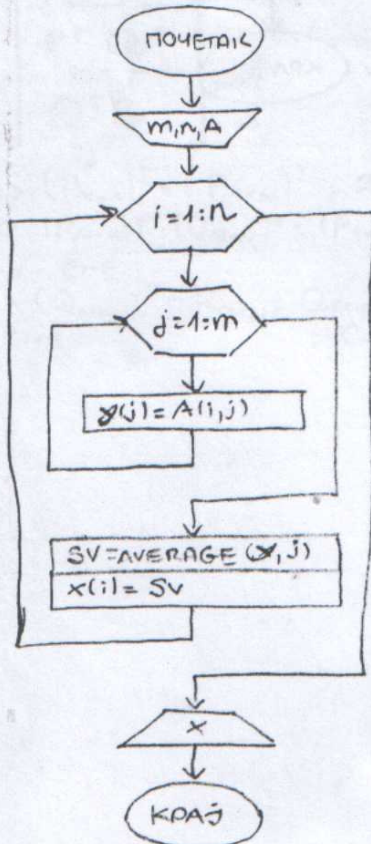 ПОЧЕТАК
m,n,A
i=1:n
j=1:m
y(j)=A(i,j)
SV=AVERAGE(y,j)
x(i)=SV
x
КРАЈ